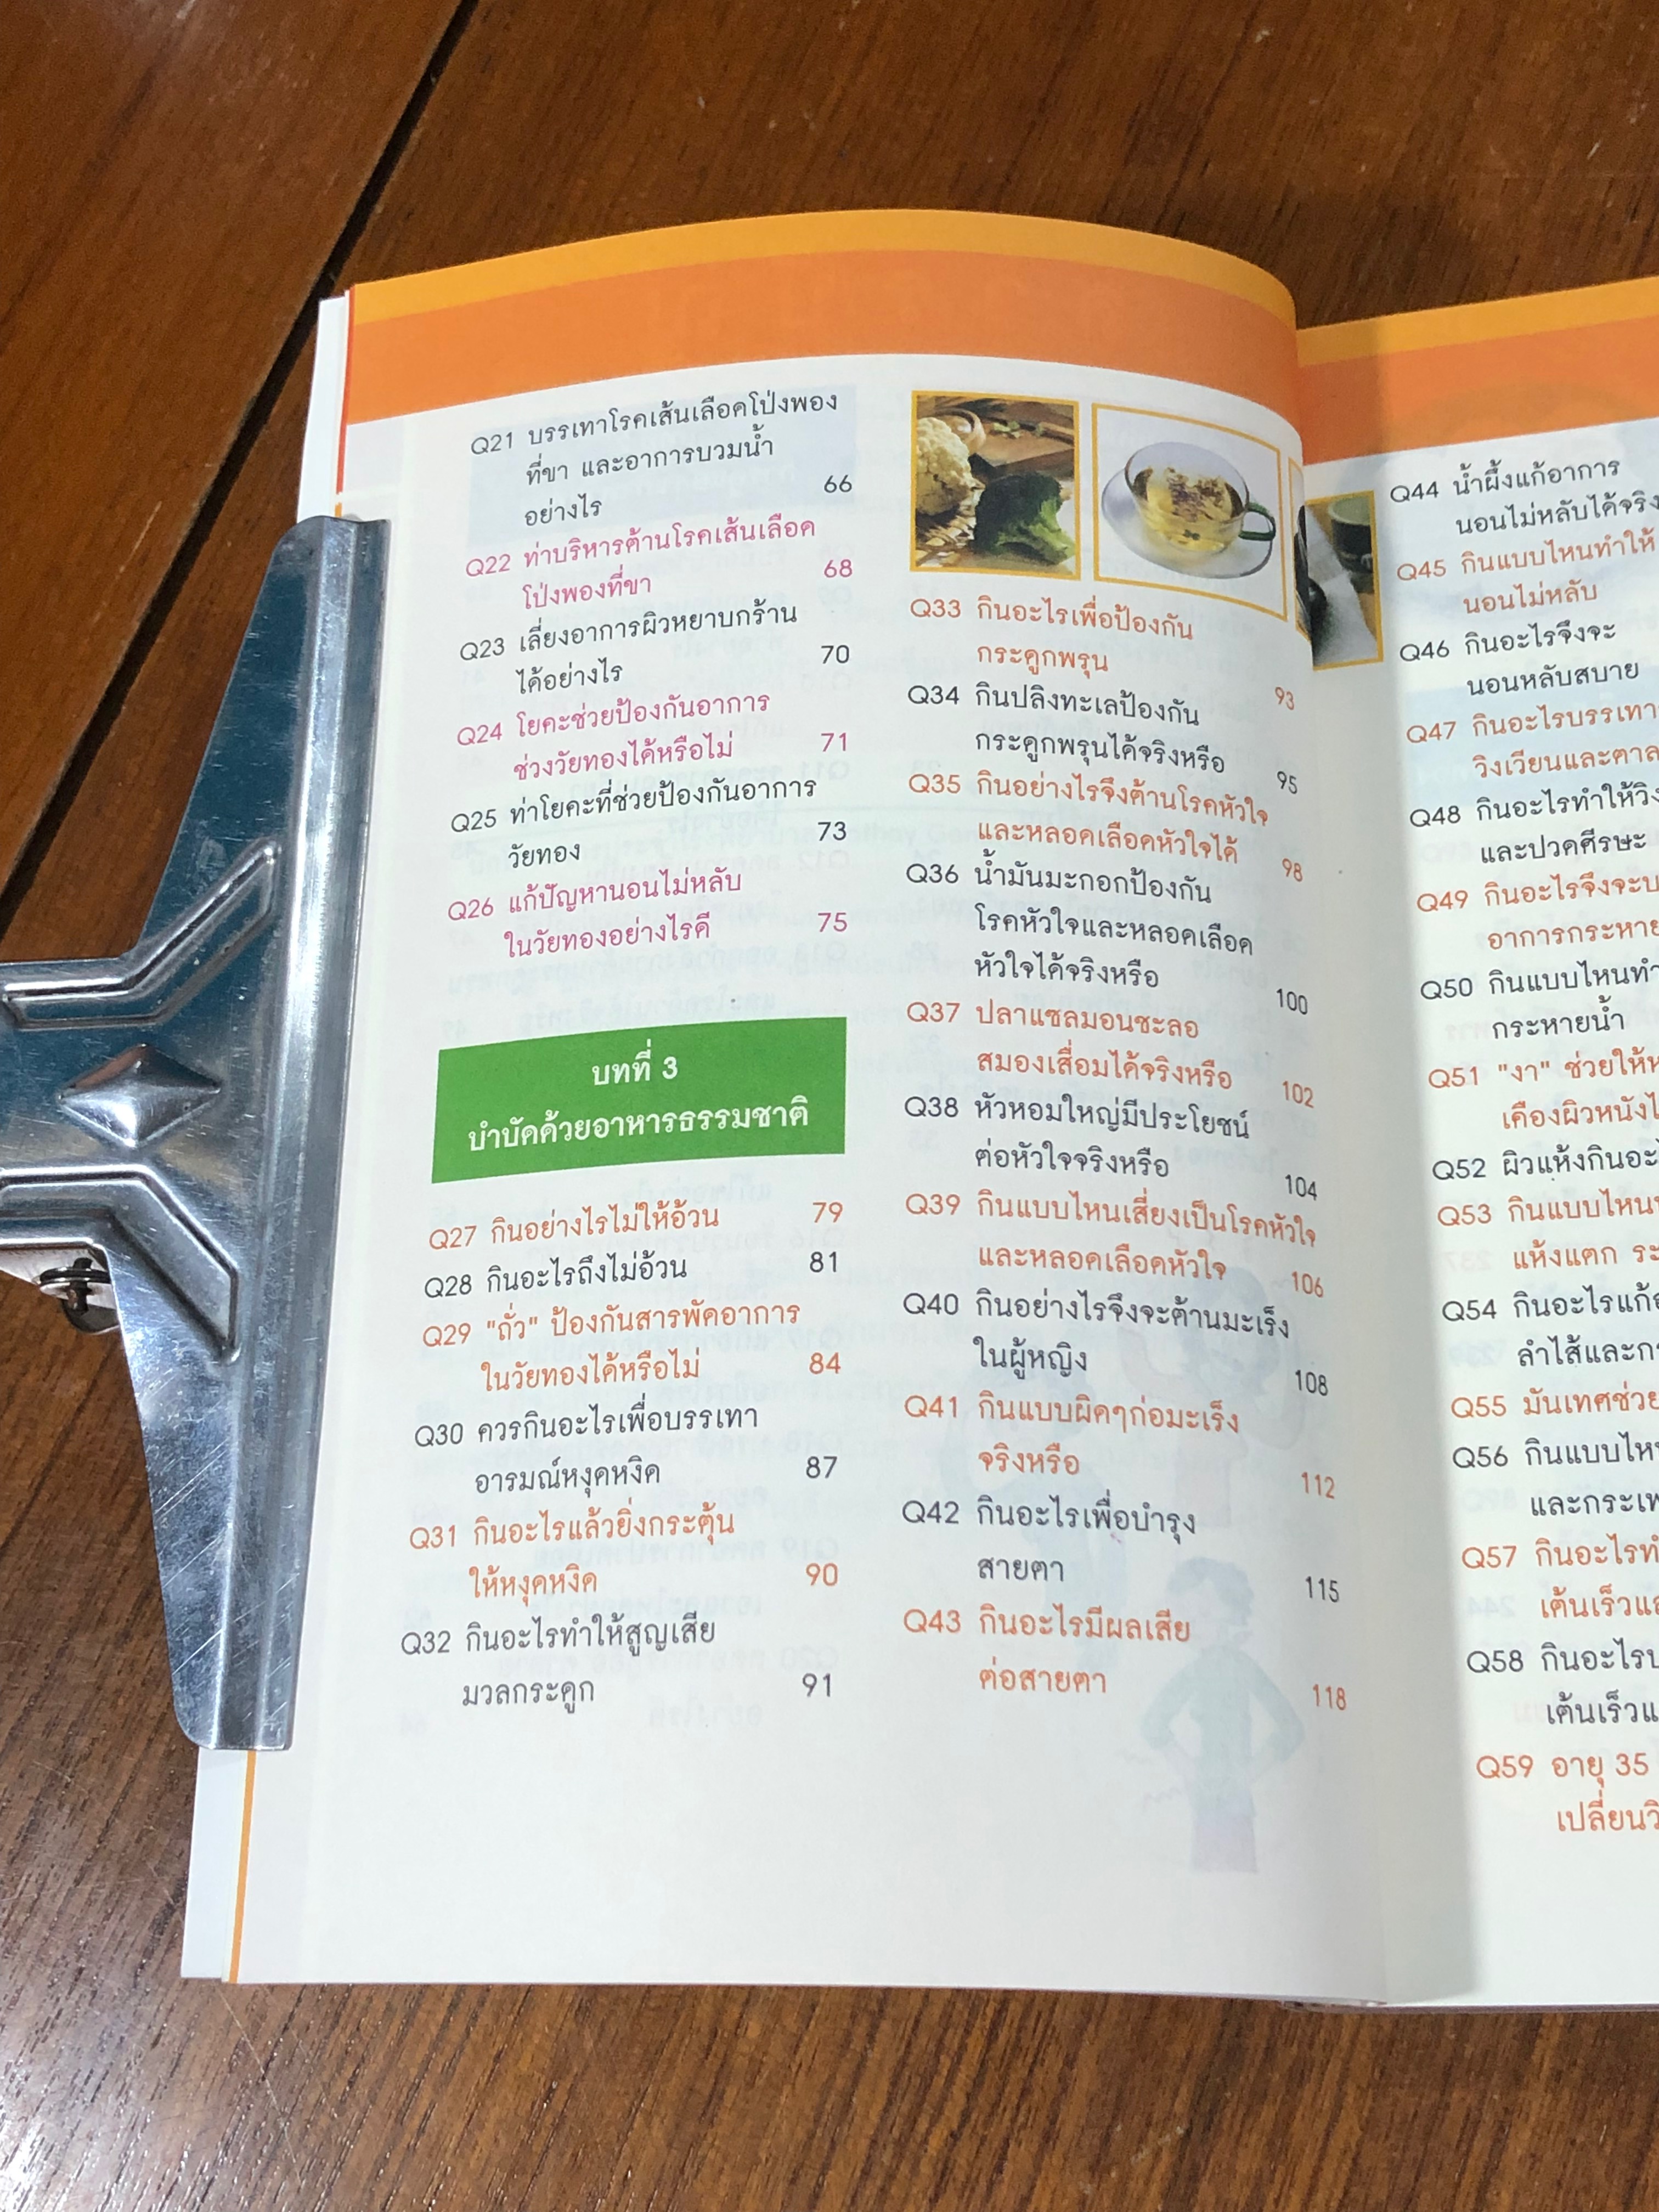 Q21 บรรเทาโรคเส้นเลือดโป่งพอง
ที่ขา และอาการบวมน้ำ
อย่างไร 66
Q22 ท่าบริหารต้านโรคเส้นเลือด
โป่งพองที่ขา 68
Q23 เลี่ยงอาการผิวหยาบกร้าน
ได้อย่างไร 70
Q24 โยคะช่วยป้องกันอาการ
ช่วงวัยทองได้หรือไม่ 71
Q25 ท่าโยคะที่ช่วยป้องกันอาการ
วัยทอง 73
Q26 แก้ปัญหานอนไม่หลับ
ในวัยทองอย่างไรดี 75
บทที่ 3
บำบัดด้วยอาหารธรรมชาติ
Q27 กินอย่างไรไม่ให้อ้วน 79
Q28 กินอะไรถึงไม่อ้วน 81
Q29 "ถั่ว" ป้องกันสารพัดอาการ
ในวัยทองได้หรือไม่ 84
Q30 ควรกินอะไรเพื่อบรรเทา
อารมณ์หงุดหงิด 87
Q31 กินอะไรแล้วยิ่งกระตุ้น
ให้หงุดหงิด 90
Q32 กินอะไรทำให้สูญเสีย
มวลกระดูก 91
Q33 กินอะไรเพื่อป้องกัน
กระดูกพรุน 93
Q34 กินปลิงทะเลป้องกัน
กระดูกพรุนได้จริงหรือ 95
Q35 กินอย่างไรจึงต้านโรคหัวใจ
และหลอดเลือดหัวใจได้ 98
Q36 น้ำมันมะกอกป้องกัน
โรคหัวใจและหลอดเลือด
หัวใจได้จริงหรือ 100
Q37 ปลาแซลมอนชะลอ
สมองเสื่อมได้จริงหรือ 102
Q38 หัวหอมใหญ่มีประโยชน์
ต่อหัวใจจริงหรือ 104
Q39 กินแบบไหนเสี่ยงเป็นโรคหัวใจ
และหลอดเลือดหัวใจ 106
Q40 กินอย่างไรจึงจะต้านมะเร็ง
ในผู้หญิง 108
Q41 กินแบบผิดๆก่อมะเร็ง
จริงหรือ 112
Q42 กินอะไรเพื่อบำรุง
สายตา 115
Q43 กินอะไรมีผลเสีย
ต่อสายตา 118
Q44 น้ำผึ้งแก้อาการ
นอนไม่หลับได้จริง
Q45 กินแบบไหนทำให้
นอนไม่หลับ
Q46 กินอะไรจึงจะ
นอนหลับสบาย
Q47 กินอะไรบรรเทา
วิงเวียนและตาล
Q48 กินอะไรทำให้วิง
และปวดศีรษะ
Q49 กินอะไรจึงจะบ
อาการกระหาย
Q50 กินแบบไหนทำ
กระหายน้ำ
Q51 "งา" ช่วยให้
เคืองผิวหนัง
Q52 ผิวแห้งกินอะ
Q53 กินแบบไหน
แห้งแตก ระ
Q54 กินอะไรแก้
ลำไส้และก
Q55 มันเทศช่วย
Q56 กินแบบไห
และกระเพ
Q57 กินอะไรทำ
เต้นเร็วแล
Q58 กินอะไร
เต้นเร็วแ
Q59 อายุ 35
เปลี่ยนวิ